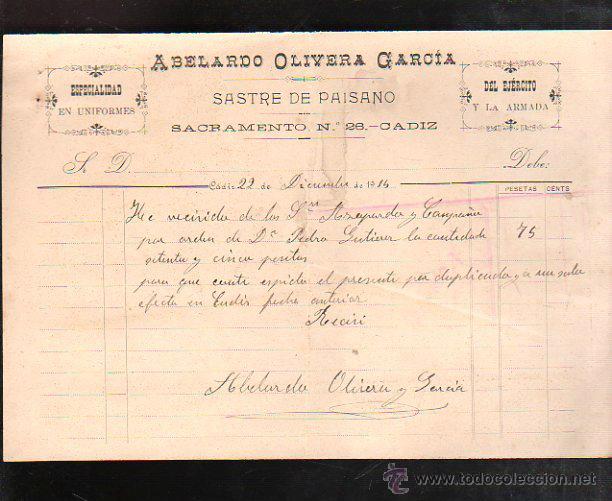 ABELARDO OLIVERA GARCÍA
ESPECIALIDAD
EN UNIFORMES
DEL EJÉRCITO
Y LA ARMADA
SASTRE DE PAISANO
SACRAMENTO, N.º 26.-CADIZ
S. D.
Debe:
Cádiz 22 de Diciembre de 19
PESETAS CENTS
He recivido de los Srs Azopardo y Compañia
por orden de Dn Pedro Gutierer la cantidad 75
setenta y cinco pesetas
para que conste espido el presente por duplicado y a un solo
efecto en Cadiz fecha anterior
Recivi
Abelardo Olivera y Garcia
www.todocoleccion.net